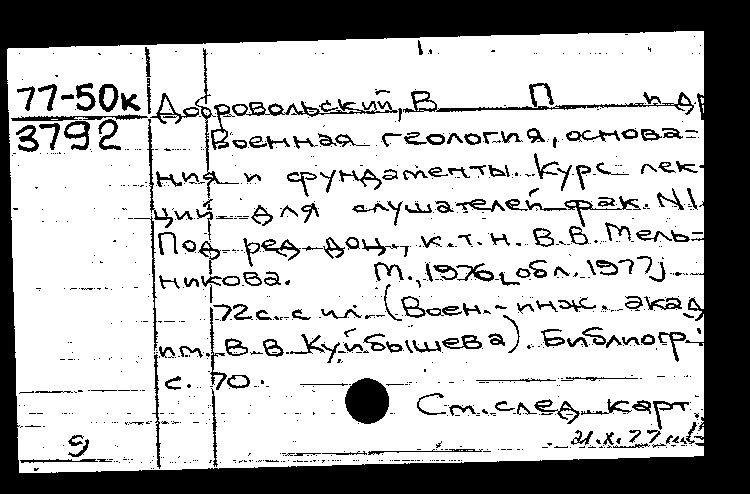 77-50к
3792
Добровольский, В П и др
Военная геология, основа-
ния и фундаменты. Курс лек-
ций для слушателей фак. N1.
Под ред. доц., к.т.н. В.В. Мель-
никова. М., 1976, [обл. 1977].
72 с. с ил. (Воен.-инж. акад
им. В.В. Куйбышева). Библиогр:
с. 70.
См. след. карт.
9
21.X.77